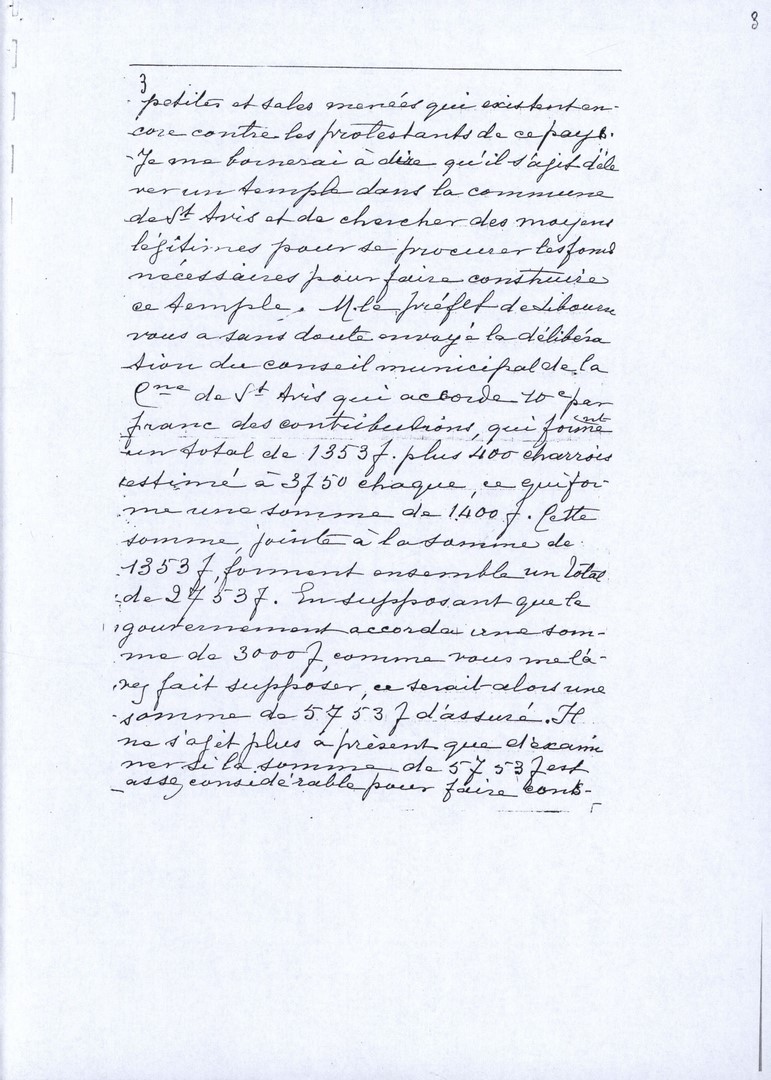 3
3
petites et sales menées qui existent en-
core contre les protestants de ce pays.
Je me bornerai à dire qu'il s'agit d'éle
ver un temple dans la commune
de St Avis et de chercher des moyens
légitimes pour se procurer les fond
nécessaires pour faire construire
ce temple. M. le préfet de Libourn
vous a sans doute envoyé la délibéra
tion du conseil municipal de la
Cne de St Avis qui accorde 10 c par
franc des contributions, qui forment
un total de 1353 f. plus 400 charrois
estimé à 3f50 chaque, ce qui for-
me une somme de 1400 f. Cette
somme, jointe à la somme de
1353 f, forment ensemble un total
de 2753 f. En supposant que le
gouvernement accorde une som-
me de 3000 f, comme vous me l'a-
vez fait supposer, ce serait alors une
somme de 5753 f d'assuré. Il
ne s'agit plus à présent que d'exami
ner si la somme de 5753 f est
assez considérable pour faire cons-